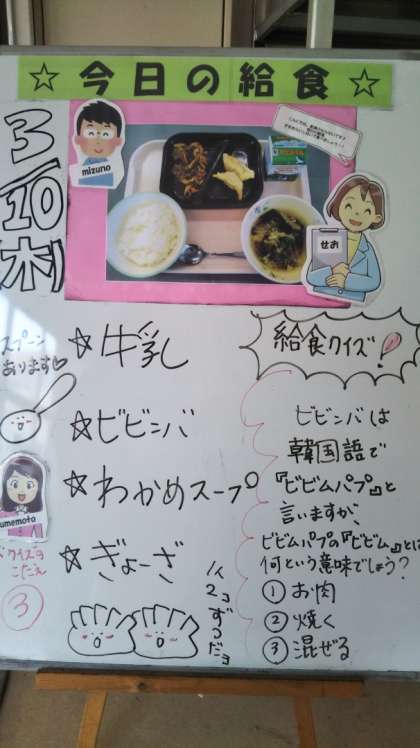 ☆今日の給食☆
3/10(木)
mizuno
せお
スプーン
あります♡
☆牛乳
☆ビビンバ
☆わかめスープ
☆ぎょーざ
1人2コずつだョ
umemoto
クイズの
こたえ
③
給食クイズ!
ビビンバは
韓国語で
『ビビムパプ』と
言いますが、
ビビムパプの『ビビム』とは
何という意味でしょう?
①お肉
②焼く
③混ぜる